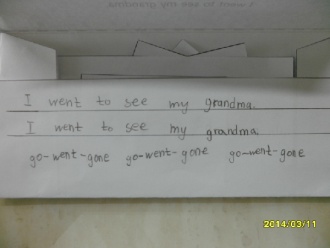 I went to see my grandma.
I went to see my grandma
go-went-gone go-went-gone go-went-gone
2014/03/11